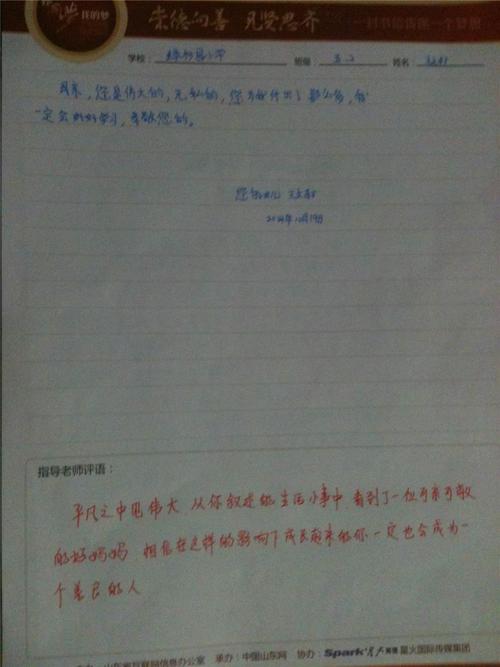 我的梦 崇德向善 见贤思齐 一封书信 一个梦想
学校： 班级：五.二 姓名：
母亲，您是伟大的，无私的，您为我付出了那么多，我
一定会好好学习，孝敬您的。
您的女儿
2014年12月19日
指导老师评语：
平凡之中见伟大 从你叙述的生活小事中 看到了一位可亲可敬
的好妈妈 相信在这样的影响下成长起来的你一定也会成为一
个善良的人
山东省互联网信息办公室 承办：中国山东网 协办：Spark 星火英语 星火国际传媒集团